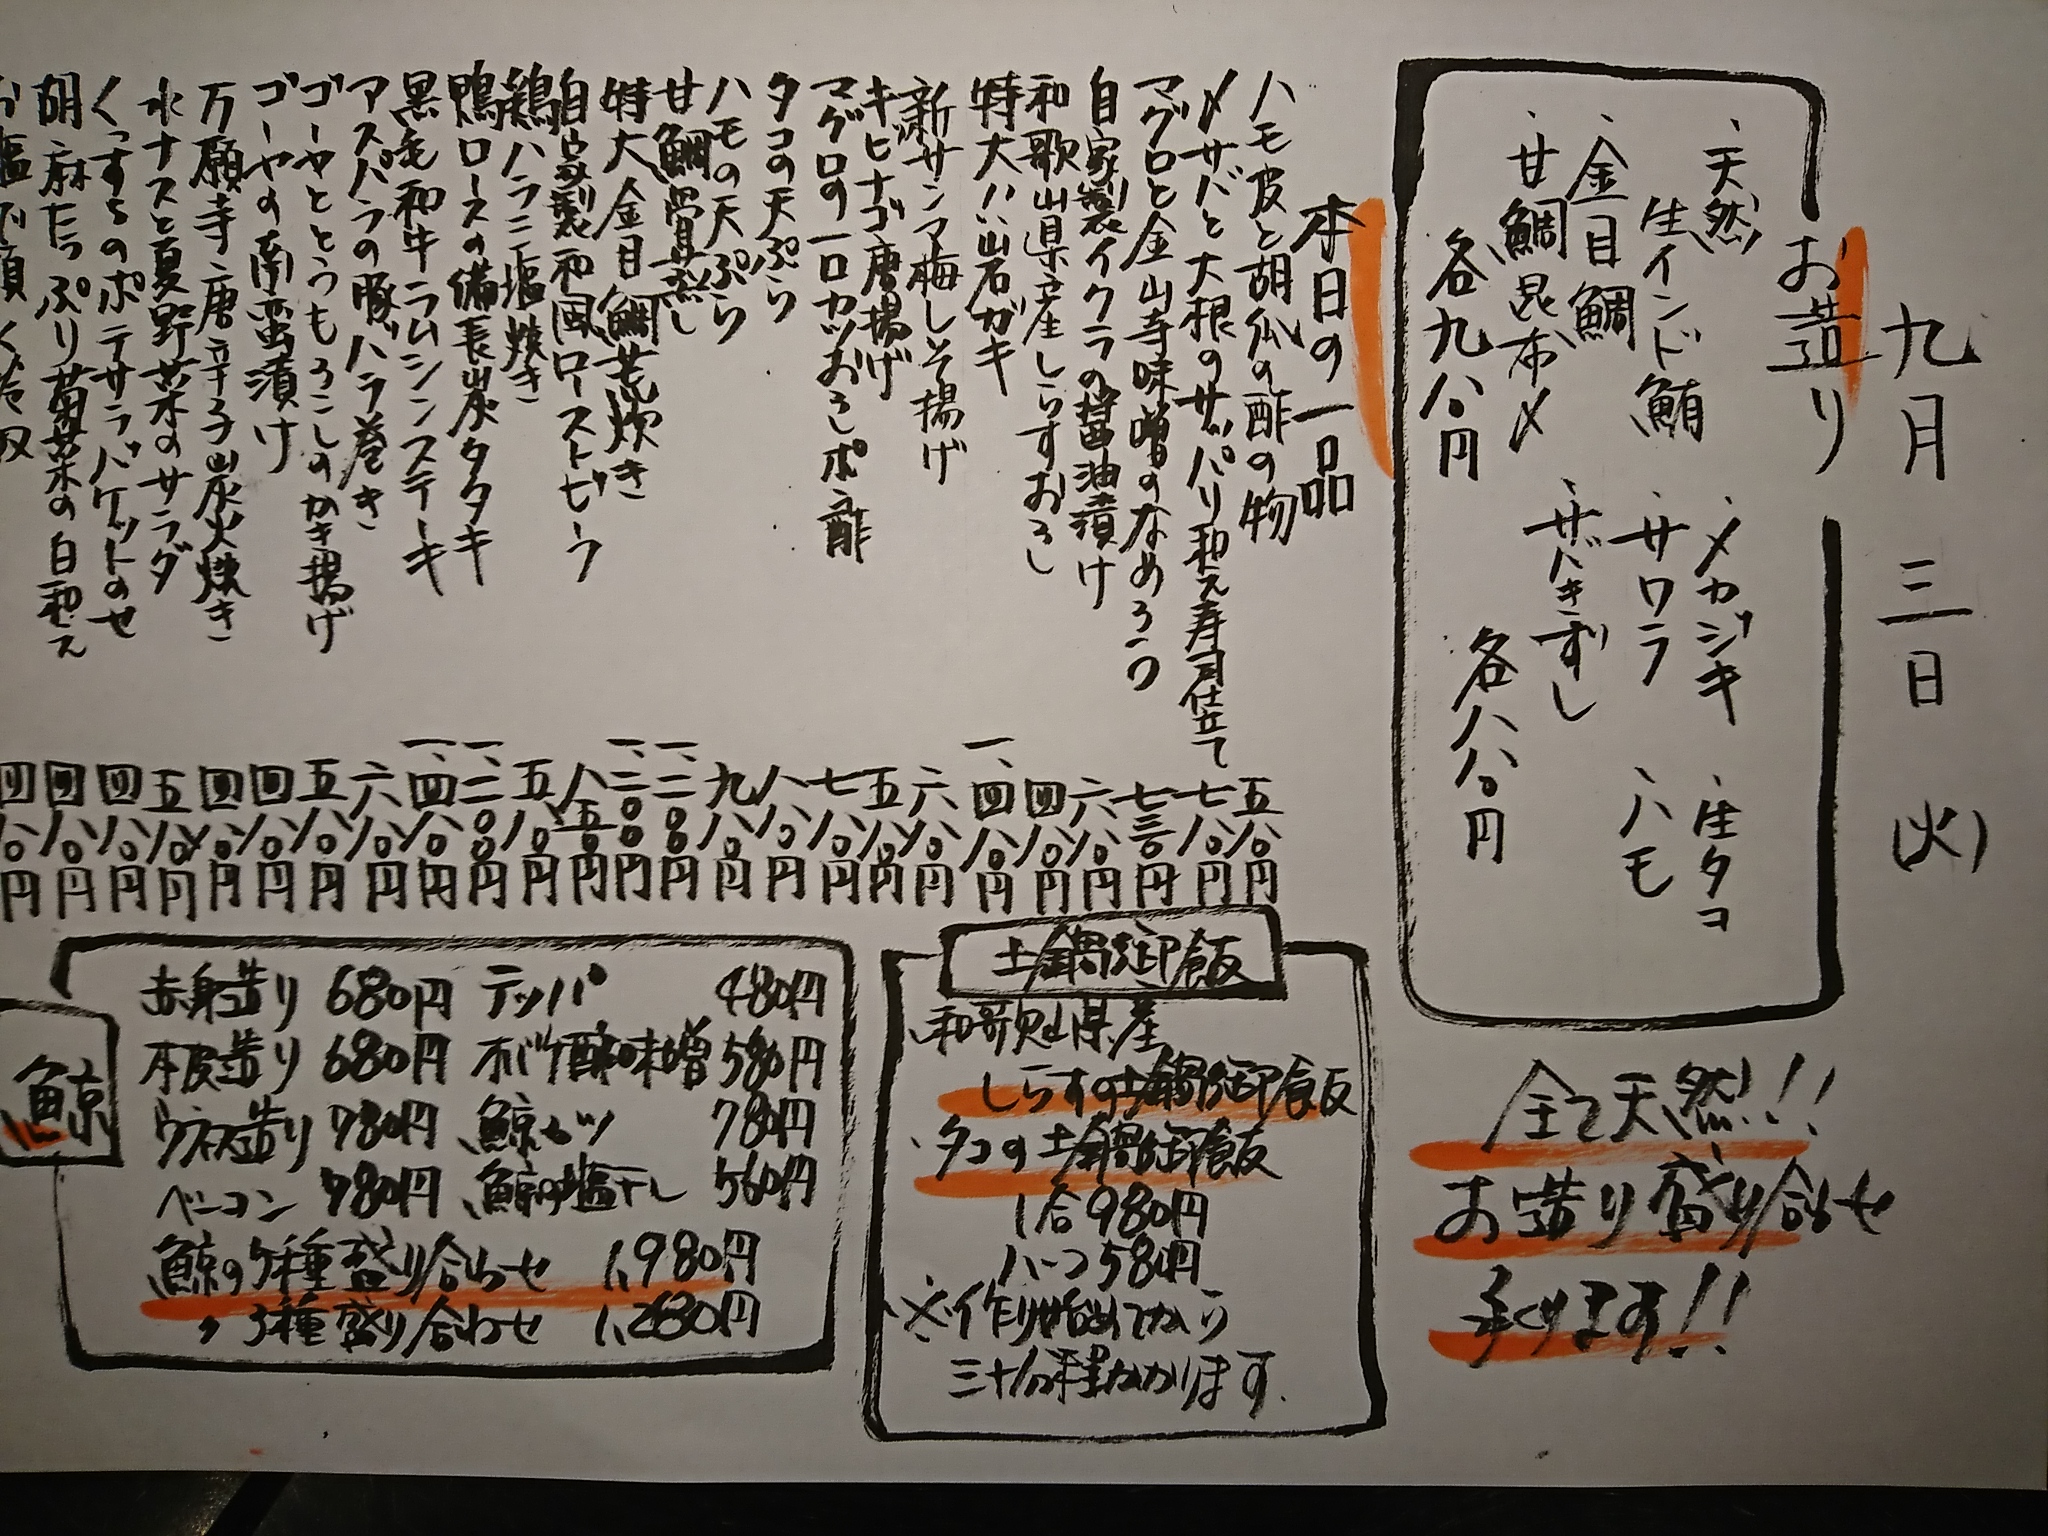 九月三日(火)
お造り
、天然
生インド鮪
、金目鯛
、甘鯛昆布〆
各九八〇円
、メカジキ
、生タコ
、サワラ
、ハモ
、サバきずし
各八八〇円
全て天然!!
お造り盛り合せ
承ります!!
本日の一品
ハモ皮と胡瓜の酢の物 五八〇円
〆サバと大根のサッパリ和え寿司仕立て 七八〇円
マグロと金山寺味噌のなめろう 七三〇円
自家製イクラの醤油漬け 六八〇円
和歌山県産しらすおろし 四八〇円
特大!!岩ガキ 一、四八〇円
新サンマ梅しそ揚げ 六八〇円
キビナゴ唐揚げ 五八〇円
マグロの一口カツおろしポン酢 七八〇円
タコの天ぷら 八八〇円
ハモの天ぷら 九八〇円
甘鯛骨蒸し 一、二〇〇円
特大金目鯛荒炊き 一、二〇〇円
自家製和風ローストビーフ 八五〇円
鶏ハラミ塩焼き 五八〇円
鴨ロースの備長炭タタキ 一、二〇〇円
黒毛和牛ラムシンステーキ 一、四八〇円
アスパラの豚バラ巻き 六八〇円
ゴーヤととうもろこしのかき揚げ 五八〇円
ゴーヤの南蛮漬け 四八〇円
万願寺唐辛子炭火焼き 四八〇円
水ナスと夏野菜のサラダ 五八〇円
くっすんのポテサラバケットのせ 四八〇円
胡麻たっぷり菊菜の白和え 四八〇円
お塩で頂く冷奴 四八〇円
土鍋御飯
和歌山県産
しらすの土鍋御飯
、タコの土鍋御飯
1合980円
ハーフ580円
※作り始めてから
三十分程かかります.
鯨
赤身造り 680円 テッパ 480円
本皮造り 680円 ホバケ酢味噌 580円
ウネス造り 780円 鯨カツ 780円
ベーコン 780円 鯨の塩干し 560円
鯨の5種盛り合わせ 1,980円
〃3種盛り合わせ 1,280円